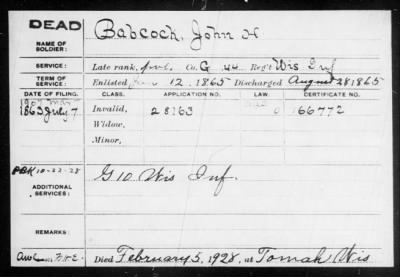 DEAD
Babcock, John H
NAME OF SOLDIER:
SERVICE: Late rank, Pvt. Co. G 44 Reg't Wis Inf
TERM OF SERVICE: Enlisted 12, 1865 Discharged August 28 1865
DATE OF FILING. CLASS. APPLICATION NO. LAW. CERTIFICATE NO.
1863 July 7 Invalid, 28163 66772
Widow,
Minor,
10-22-28 G 10. Wis Inf.
ADDITIONAL SERVICES:
REMARKS:
Died February 5, 1928, at Tomah Wis